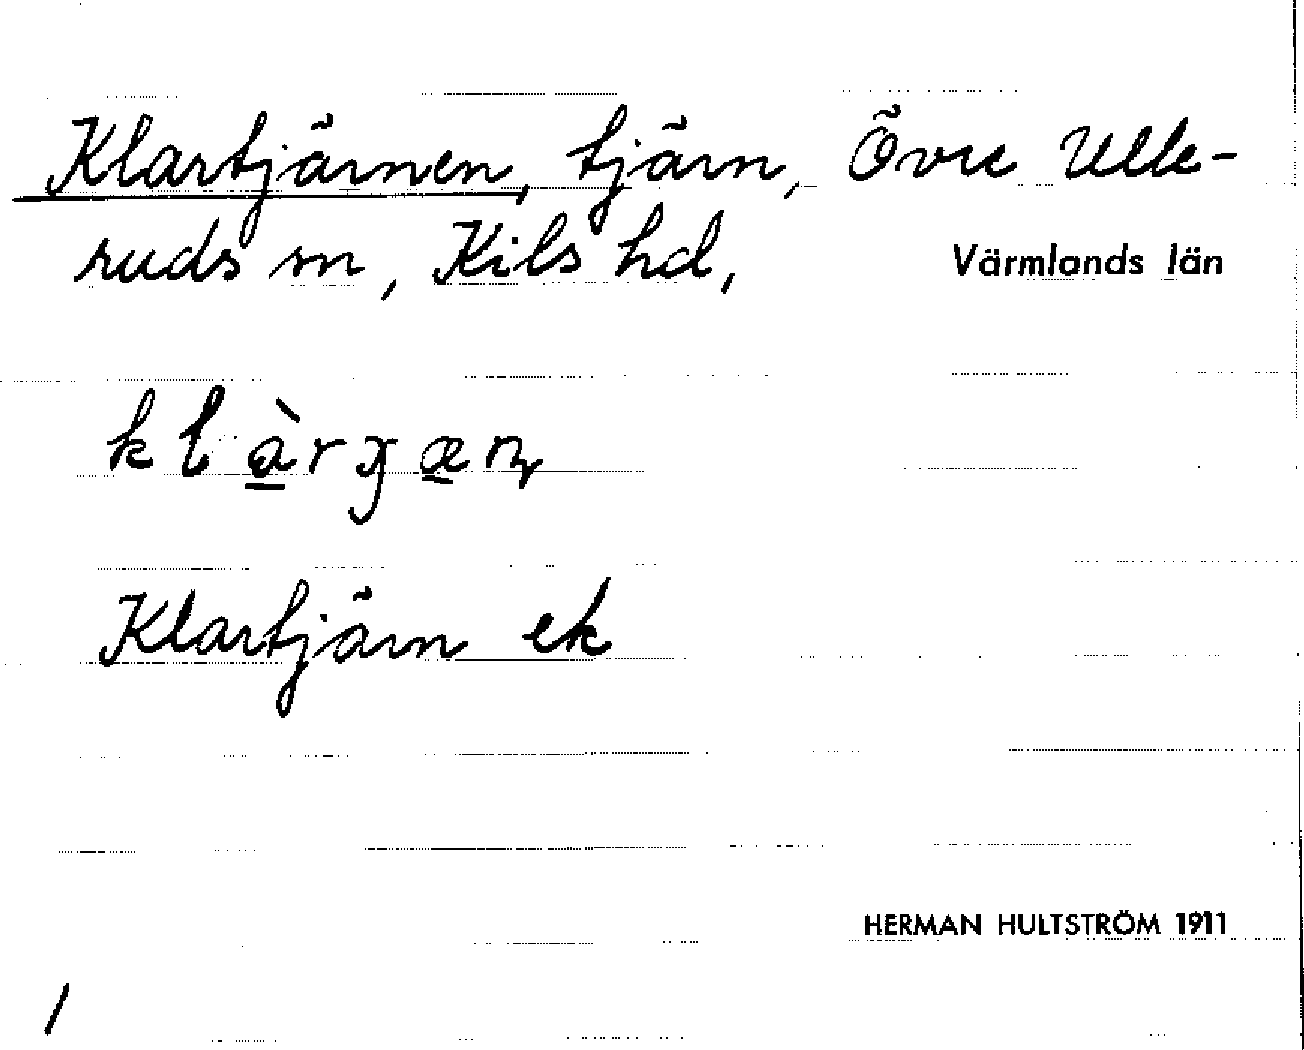 Klartjärnen, tjärn, Övre Ulle-
ruds sn, Kils hd, Värmlands län
klàrɡæɳ
Klartjärn ek
HERMAN HULTSTRÖM 1911
/